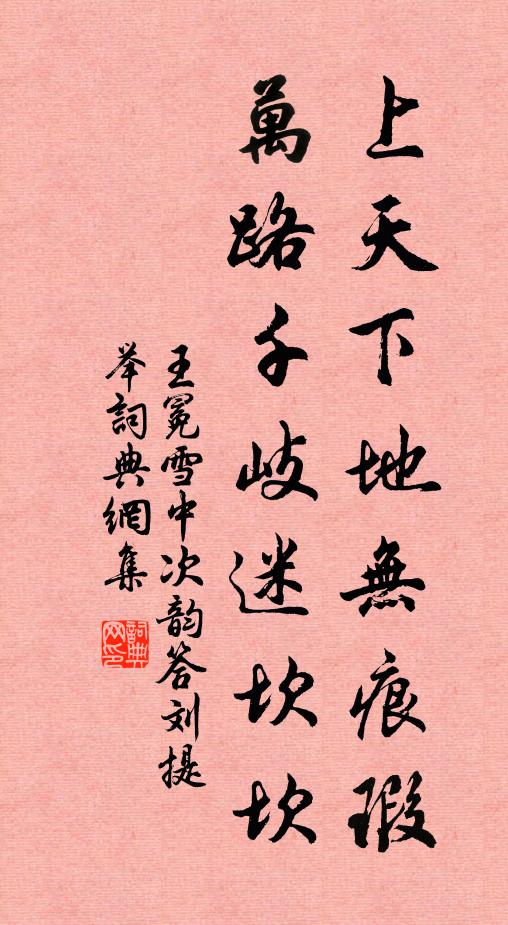 上天下地無痕瑕
萬路千岐迷坎坎
王冕雪中次韵答刘提
举詞典網集
詞典
网印